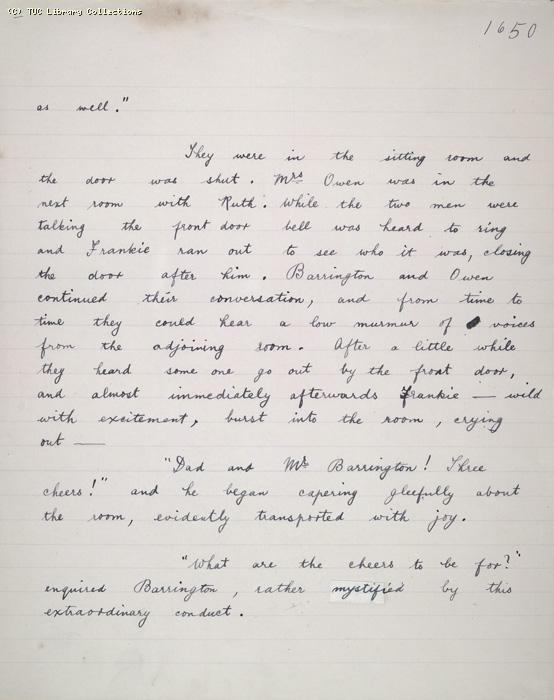 (C) TUC Library Collections
1650
as well."
They were in the sitting room and
the door was shut. Mrs Owen was in the
next room with Ruth. While the two men were
talking the front door bell was heard to ring
and Frankie ran out to see who it was, closing
the door after him. Barrington and Owen
continued their conversation, and from time to
time they could hear a low murmur of voices
from the adjoining room. After a little while
they heard some one go out by the front door,
and almost immediately afterwards Frankie — wild
with excitement, burst into the room, crying
out —
"Dad and Mr Barrington! Three
cheers!" and he began capering gleefully about
the room, evidently transported with joy.
"What are the cheers to be for?"
enquired Barrington, rather mystified by this
extraordinary conduct.